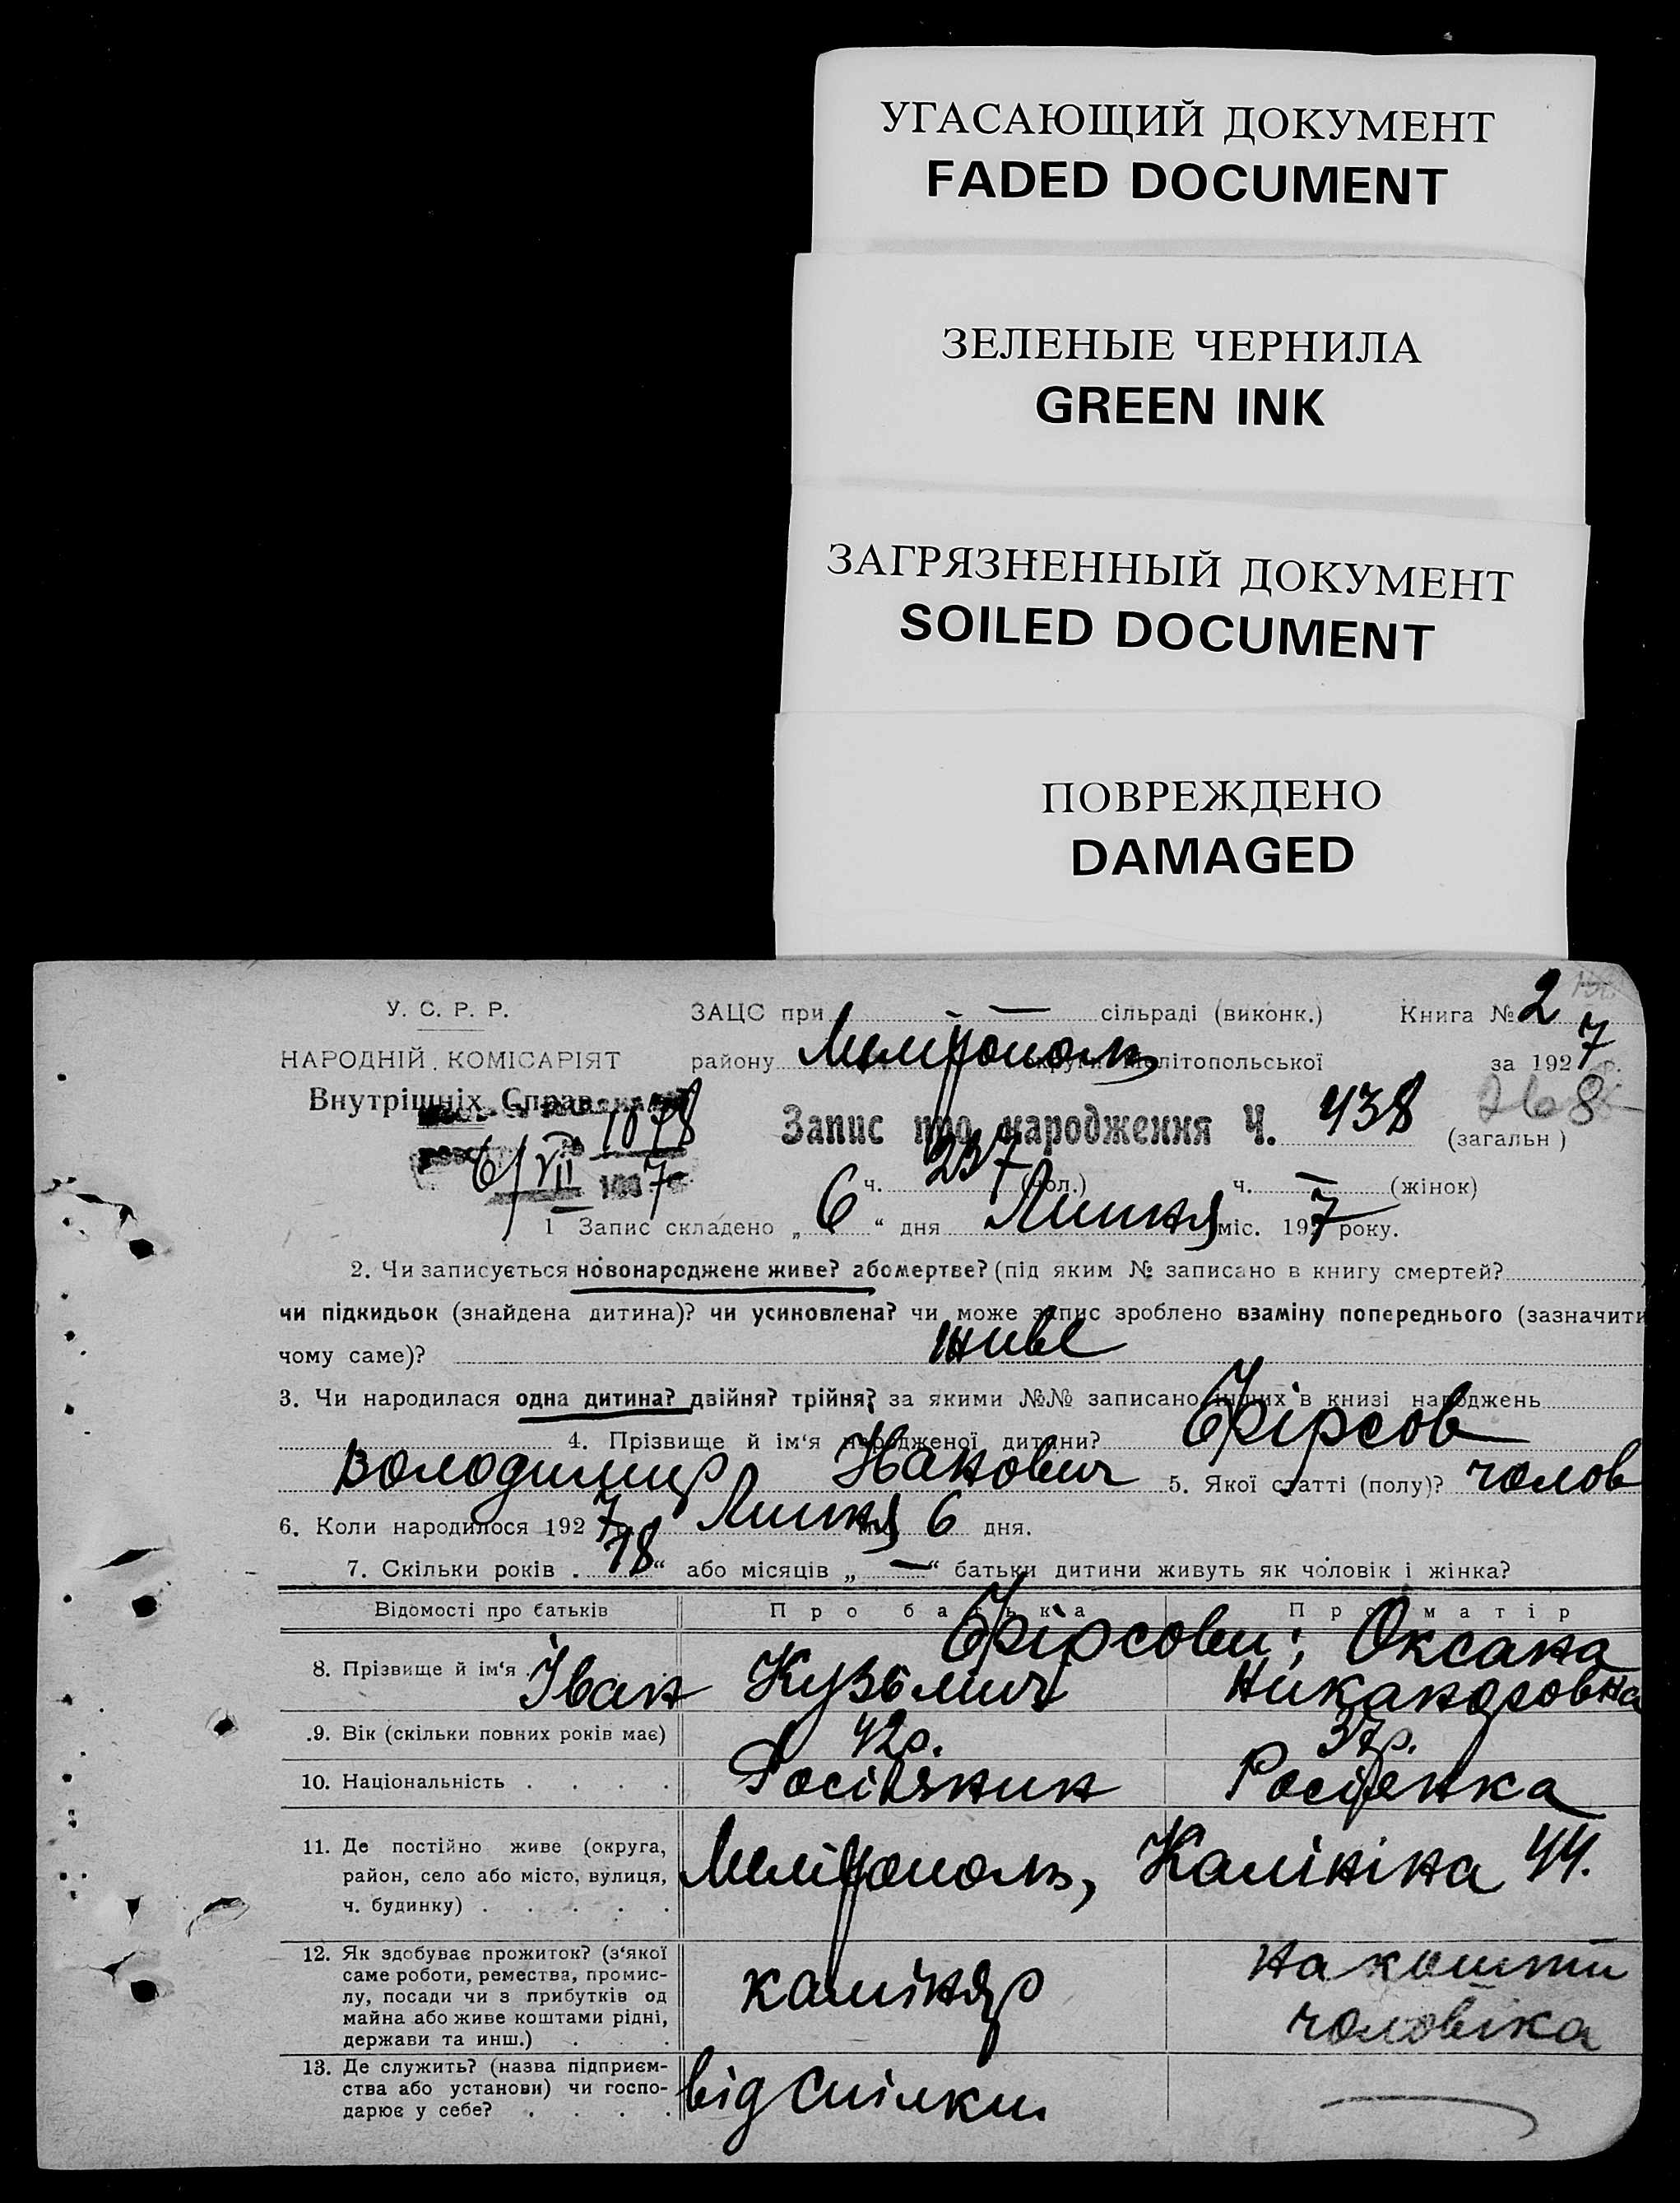 УГАСАЮЩИЙ ДОКУМЕНТ
FADED DOCUMENT
ЗЕЛЕНЫЕ ЧЕРНИЛА
GREEN INK
ЗАГРЯЗНЕННЫЙ ДОКУМЕНТ
SOILED DOCUMENT
ПОВРЕЖДЕНО
DAMAGED
У. С. Р. Р.
НАРОДНІЙ КОМІСАРІЯТ
Внутрішніх Справ
1078
6/VII 1927
ЗАЦС при — сільраді (виконк.) Книга № 2
району Мелітополь округи Мелітопольської за 1927 р.
268
Запис про народження Ч. 438 (загальн)
ч. 237 (чол.) ч. — (жінок)
1 Запис складено „ 6 “ дня Липня міс. 1927 року.
2. Чи записується новонароджене живе? або мертве? (під яким № записано в книгу смертей? )
чи підкидьок (знайдена дитина)? чи усиновлена? чи може запис зроблено взаміну попереднього (зазначити
чому саме)? живе
3. Чи народилася одна дитина? двійня? трійня? за якими №№ записано інших в книзі народжень
4. Прізвище й ім'я народженої дитини? Фірсов
Володимир Іванович 5. Якої статті (полу)? чолов
6. Коли народилося 1927 р. Липня 6 дня.
7. Скільки років „ 18 “ або місяців „ — “ батьки дитини живуть як чоловік і жінка?
Відомості про батьків Про батька Про матір
Фірсови;
8. Прізвище й ім'я Іван Кузьмич Оксана Никаноровна
9. Вік (скільки повних років має) 42р. 37р.
10. Національність . . . . Росіянин Росіянка
11. Де постійно живе (округа,
район, село або місто, вулиця,
ч. будинку) . . . . .
Мелітополь, Калініна 44.
12. Як здобуває прожиток? (з'якої
саме роботи, ремества, промис-
лу, посади чи з прибутків од
майна або живе коштами рідні,
держави та инш.) . . .
каміняр
на кошти
чоловіка
13. Де служить? (назва підприєм-
ства або установи) чи госпо-
дарює у себе? . . . .
від Спілки